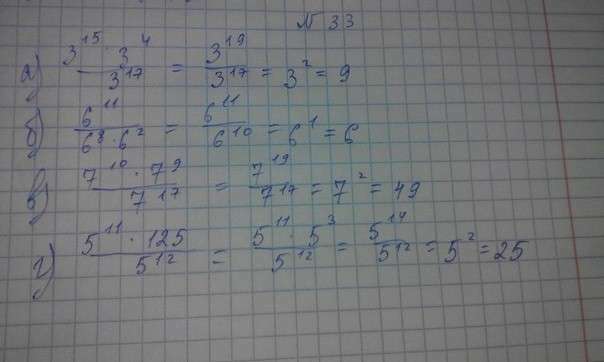 № 33
а) 3^15 · 3^4 / 3^17 = 3^19 / 3^17 = 3^2 = 9
б) 6^11 / 6^8 · 6^2 = 6^11 / 6^10 = 6^1 = 6
в) 7^10 · 7^9 / 7^17 = 7^19 / 7^17 = 7^2 = 49
г) 5^11 · 125 / 5^12 = 5^11 · 5^3 / 5^12 = 5^14 / 5^12 = 5^2 = 25